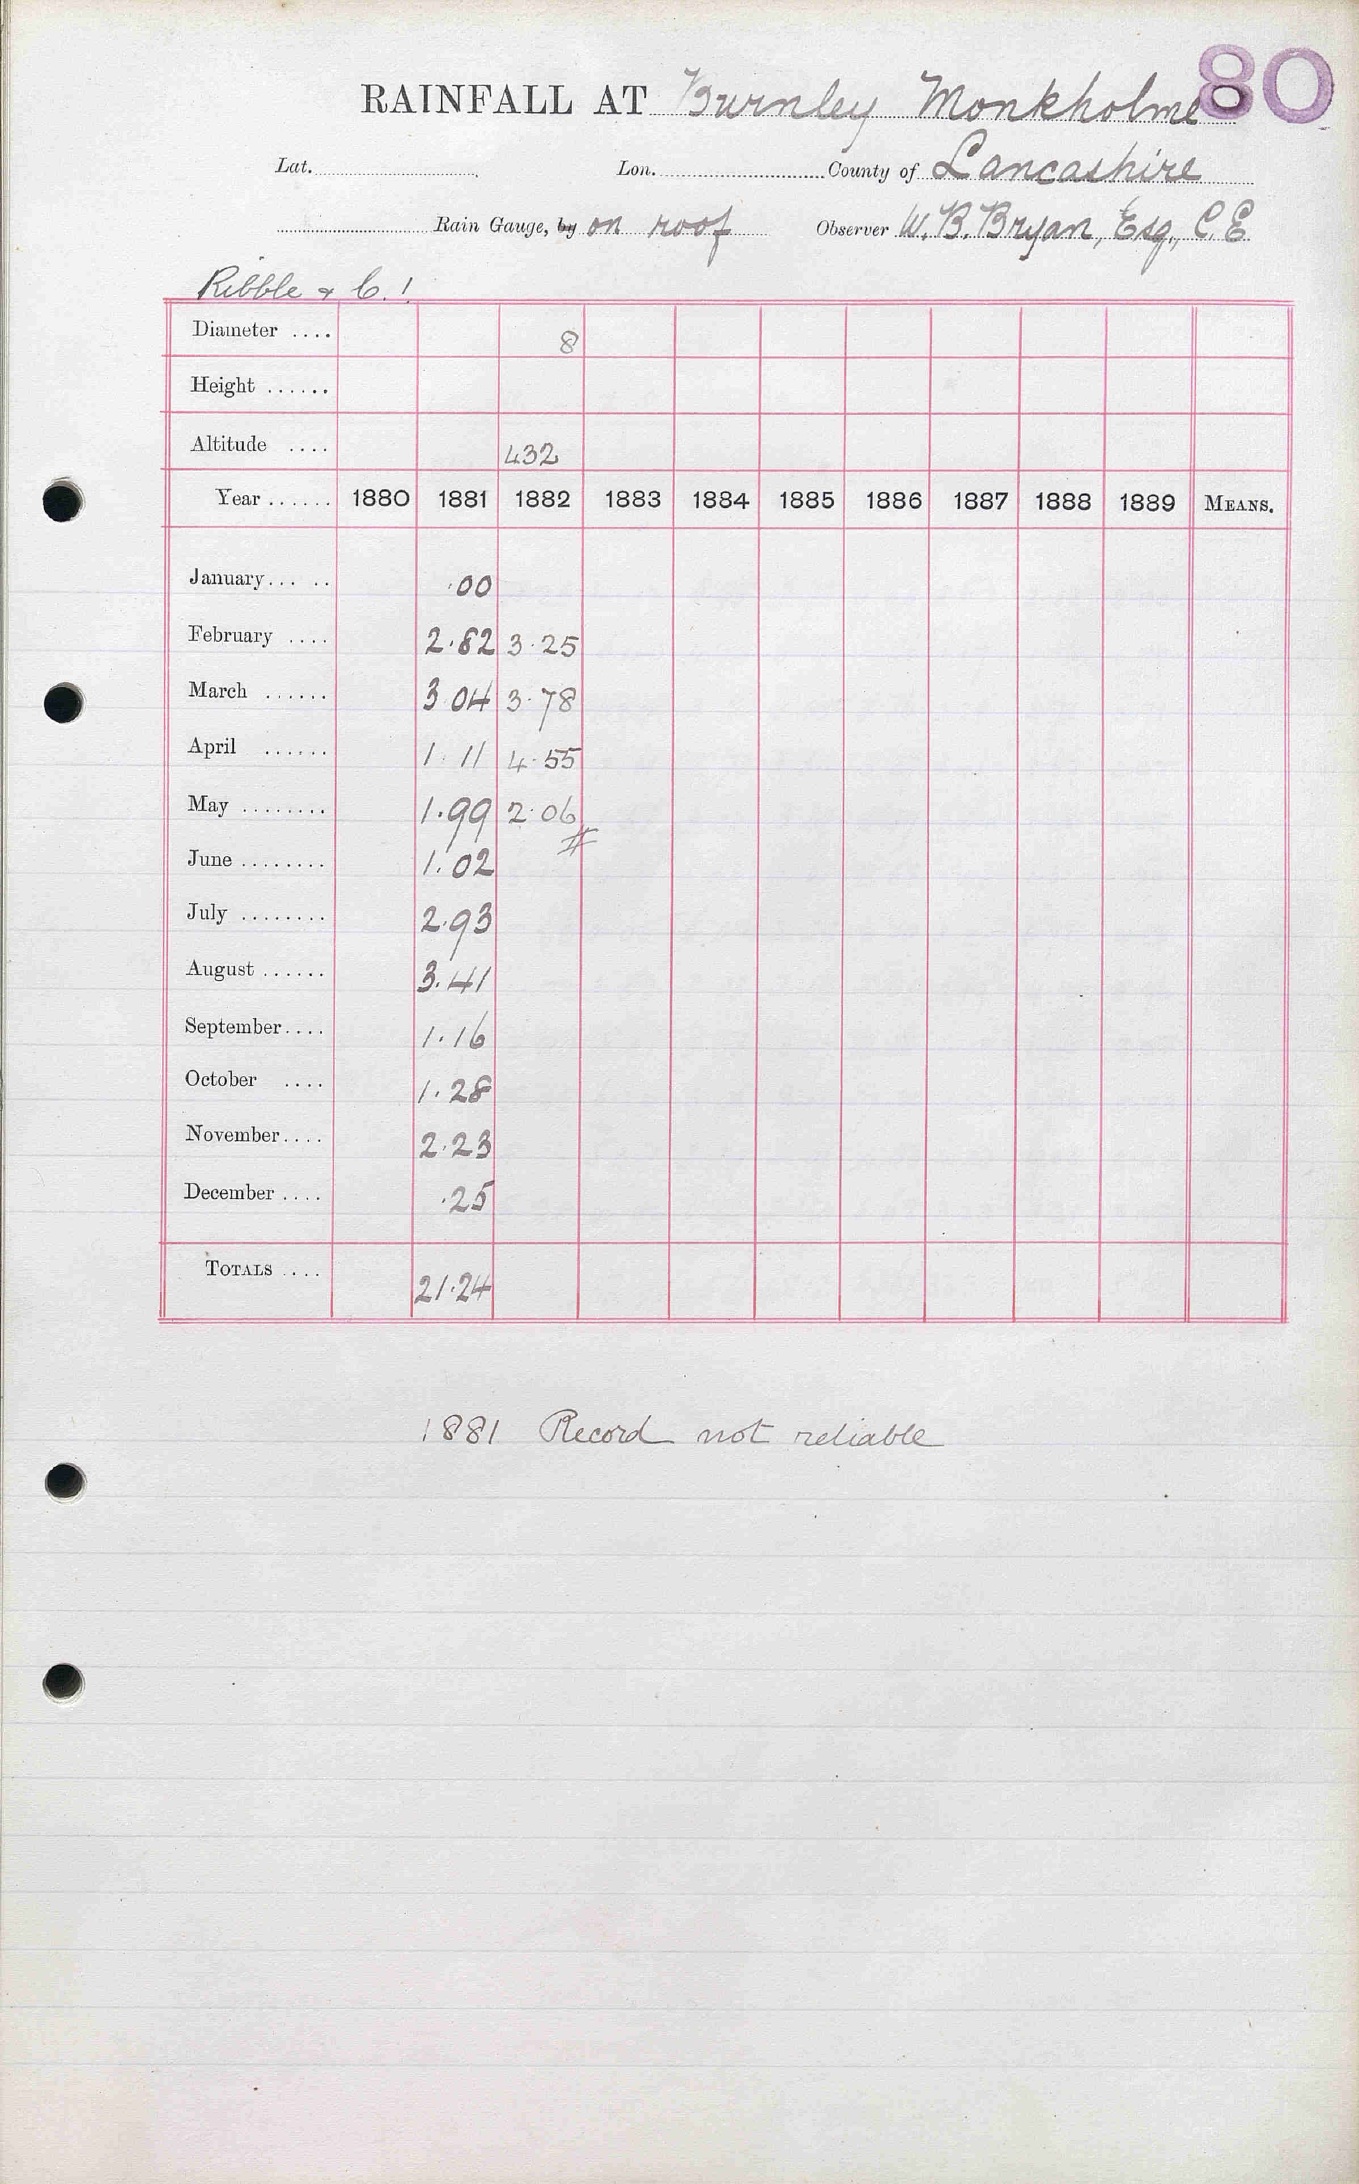 80
RAINFALL AT Burnley Monkholme
Lat. Lon. County of Lancashire
Rain Gauge, by on roof Observer W. B. Bryan, Esq., C.E
Ribble & C. !
Diameter .... 8
Height ......
Altitude .... 432
Year ...... 1880 1881 1882 1883 1884 1885 1886 1887 1888 1889 MEANS.
January... .. ·00
February .... 2·82 3·25
March ...... 3 04 3·78
April ...... 1 11 4·55
May ........ 1·99 2·06
#
June ........ 1·02
July ........ 2·93
August ...... 3·41
September.... 1·16
October .... 1·28
November.... 2·23
December .... ·25
TOTALS .... 21·24
1881 Record not reliable